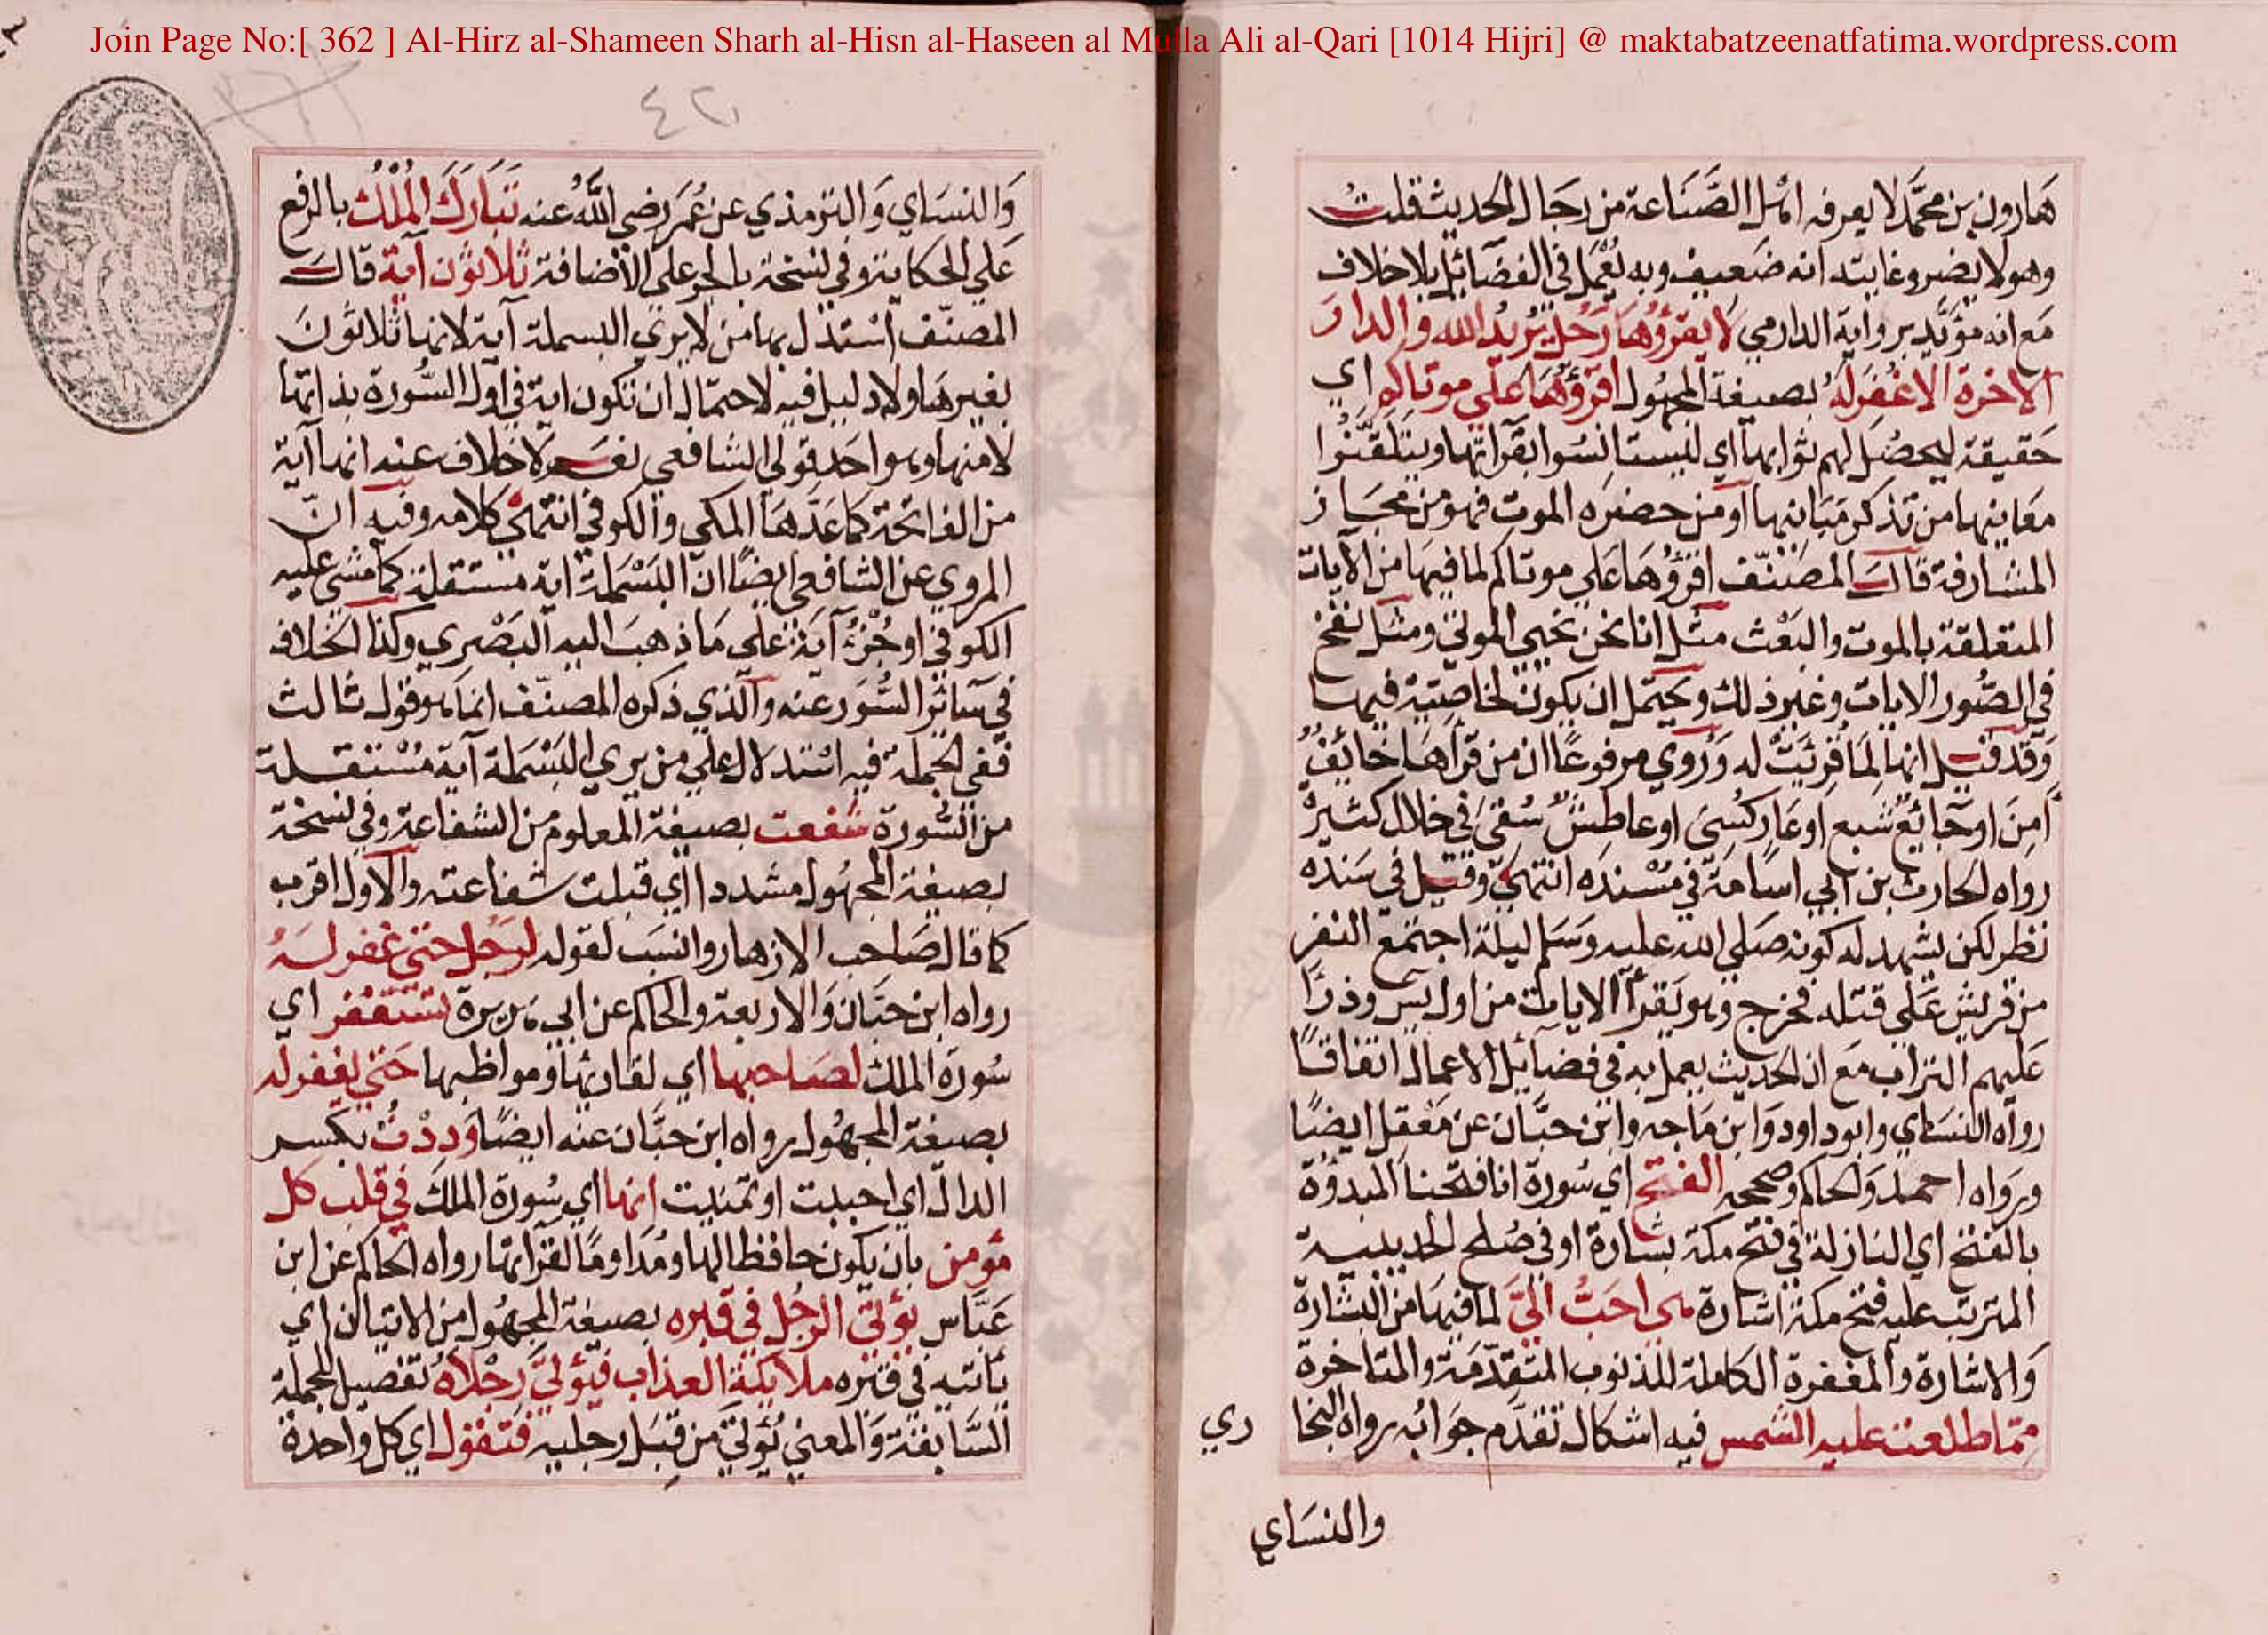 Join Page No:[ 362 ] Al-Hirz al-Shameen Sharh al-Hisn al-Haseen al Mulla Ali al-Qari [1014 Hijri] @ maktabatzeenatfatima.wordpress.com
هَارون بن محمَّد لا يعرفه اهل الصَّنَاعة من رجَال الحديث قلتُ
وهو لا يضر وغايته انه ضعيف وبه يُعْمَل في الفضَائل بلا خلاف
مَع انه مؤيّد برواية الدارمي لا يقرؤُهَا رَجُل يُرِيدُ الله والدارَ
الاخرة الا غُفرَ لَهُ بصيغة المجهُول اقرؤُهَا علي موتاكم اي
حَقيقة ليحصُل لهم ثوابها اي ليستانسُوا بقرَاتها ويتلقَّنُوا
معَانيها من تذكر مَبَانيها او من حضرَه الموت فهو من مجَاز
المشارفة قالَ المصَنّف اقرؤُهَا عَلي موتاكم لما فيهَا من الآيات
المتعلقة بالموت والبَعْث مثل انا نحن نحيي الموتي ومثل نفخ
في الصُّور الايات وغير ذلك ويحتمل ان يكون لخاصّيّة فيها
وَقَد قيل انها لِمَا قرِئَتْ له وَرُوي مرفوعًا ان من قرأهَا خائِفٌ
أَمِنَ او جَائِعٌ شَبع او عَارٍ كُسِيَ او عاطِشٌ سُقيَ في خلال كثيرة
رواه الحارث بن ابي اسَامَة في مُسْندَه انتهي وقيل في سَنَده
نظر لكن يشهد له كونه صَلي الله عليه وَسَلم ليلة اجتمع النفر
من قريش عَلَي قتله فخرج وهو يَقرأ الايات من اول يسَ وذرَّا
عَليهم التراب مَع ان الحديث يعمل به في فضائِل الاعمال اتفاقًا
رواه النسَاي وابو داود وَابن مَاجه وابن حبَّان عن مَعْقل ايضًا
ورَواه احمَد وَالحاكم وصححه الفتح اي سُورة انا فتحنا المبدوّة
بالفتح اي النازلة في فتح مكة بشارة او في صُلح الحديبية
المترتب عليه فتح مكة اشارة هي احَبُّ اليَّ لما فيهَا من البشارة
وَالاشارة والمغفرة الكاملة للذنوب المتقدّمَة والمتاخرة
مِمّا طلعت عليه الشمس فيه اشكال تقدَّم جوَابُه رواه البخا ري
والنسَاي
٤٢١
وَالنسَاي وَالترمذي عن عُمَر رضي اللَّهُ عنه تَبَارَكَ المُلْكُ بالرفع
عَلي الحكاية وفي نسخة بالجر علي الاضافة ثلاثون آية قالَ
المصنّف استدل بها من لا يري البسملة آية لانها ثلاثونَ
بغيرهَا ولا دليل فيه لاحتمال ان تكون اية في اول السُّورة بذاتها
لا منها وهو احَد قولي الشافعي نعم لا خلاف عنه انها آية
من الفاتحة كما عَدَّهَا المكي والكوفي انتهي كلامه وفيه انّ
المروي عن الشافعي ايضًا ان البَسْمَلة اية مستقلة كما مشي عليه
الكوفي او جُزْءُ آية علي مَا ذهبَ اليه البَصْري وكذا الخلاف
في سَائر السُّوَر عنه والّذي ذكره المصنّف انما هو قول ثالث
ففي الجملة فيه استدلال علي من يري البَسْمَلة آية مُسْتقلة
من السُّورة شفعت بصيغة المعلوم من الشفاعة وفي نسخة
بصيغة المجهُول مشددا اي قبلت شفاعته والاول اقرب
كما قال صَاحب الازهار وانسَب لقوله لرَجُل حتي غُفر لَهُ
رواه ابن حبَّان وَالاربعة والحاكم عن ابي هريرة تستغفر اي
سُورة الملك لصَاحبها اي لقاريها ومواظبها حَتي يغفر له
بصيغة المجهُول رواه ابن حبَّان عنه ايضًا وَدِدْتُ بكسر
الدال اي احببت او تمنيت انها اي سُورة الملكَ في قلب كل
مؤمن بان يكون حافظا لها ومُدَاومًا لقرَاتها رواه الحاكم عن ابن
عَبَّاس يؤتي الرجُل في قبره بصيغة المجهُول من الاتيان اي
ياتيه في قبره ملايكة العذاب فيُؤتيَ رجْلاهُ تفصيل للجملة
السَّابقة وَالمعني يُؤتي من قِبَل رجليه فتقول اي كل واحدة